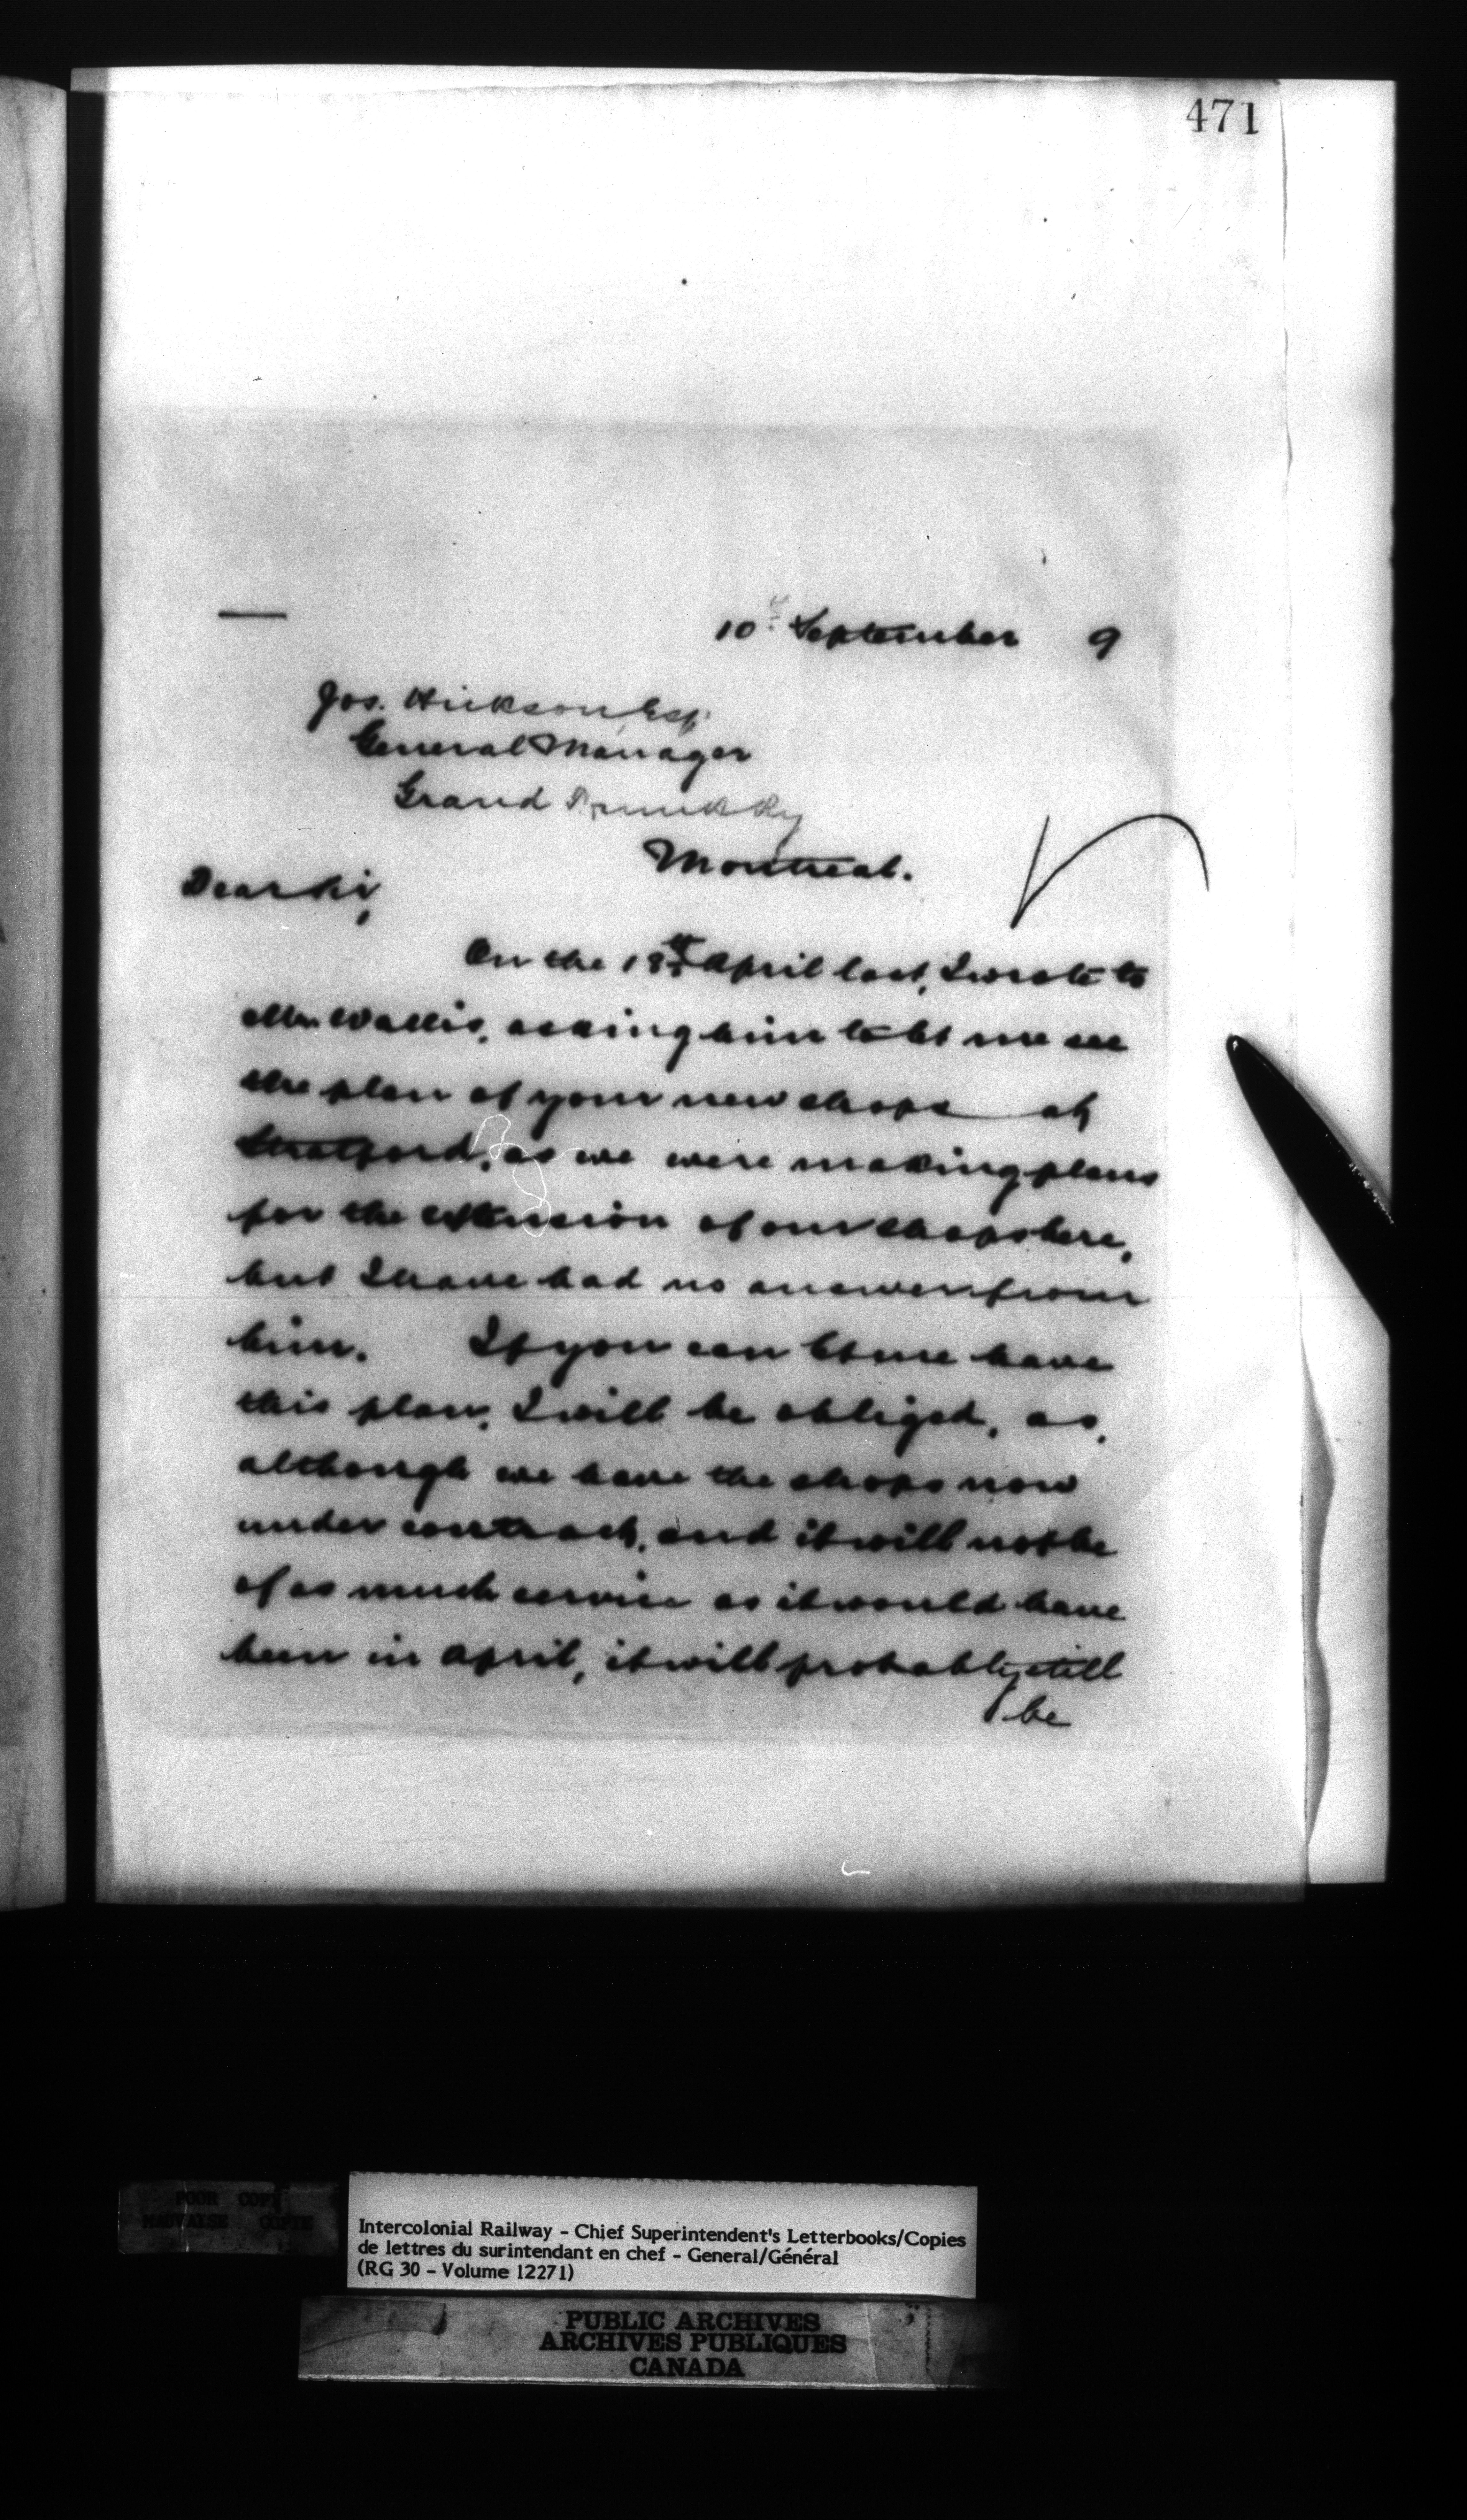 471
10th September 9
Jos. Hickson Esq.
General Manager
Grand Trunk Ry
Montreal.
Dear Sir,
On the 18th April last, I wrote to
Mr. Wallis, asking him to let me see
the plan of your new shops at
Stratford, as we were making plans
for the extension of our shops here,
but I have had no answer from
him. If you can let me have
this plan, I will be obliged, as,
although we have the shops now
under contract, and it will not be
of as much service as it would have
been in April, it will probably still
be
POOR COPY
MAUVAISE COPIE
Intercolonial Railway - Chief Superintendent's Letterbooks/Copies
de lettres du surintendant en chef - General/Général
(RG 30 - Volume 12271)
PUBLIC ARCHIVES
ARCHIVES PUBLIQUES
CANADA